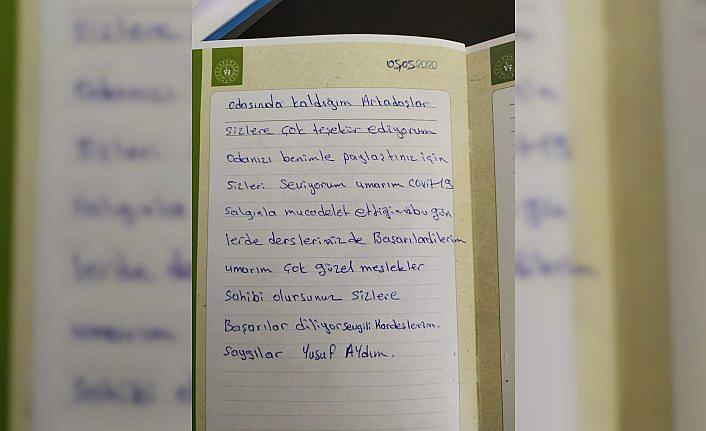 05052020
odasında kaldığım Arkadaşlar
sizlere çok teşekür ediyorum
odanızı benimle paylaştınız için
sizleri seviyorum umarım covit-19
salgınla mucadelet ettiğimiz bu gün
lerde derslerimizde Başarılardilerim
umarım çok güzel meslekler
Sahibi olursunuz sizlere
Başarılar diliyor sevgili Kardeşlerim.
Saygılar Yusuf Aydım.